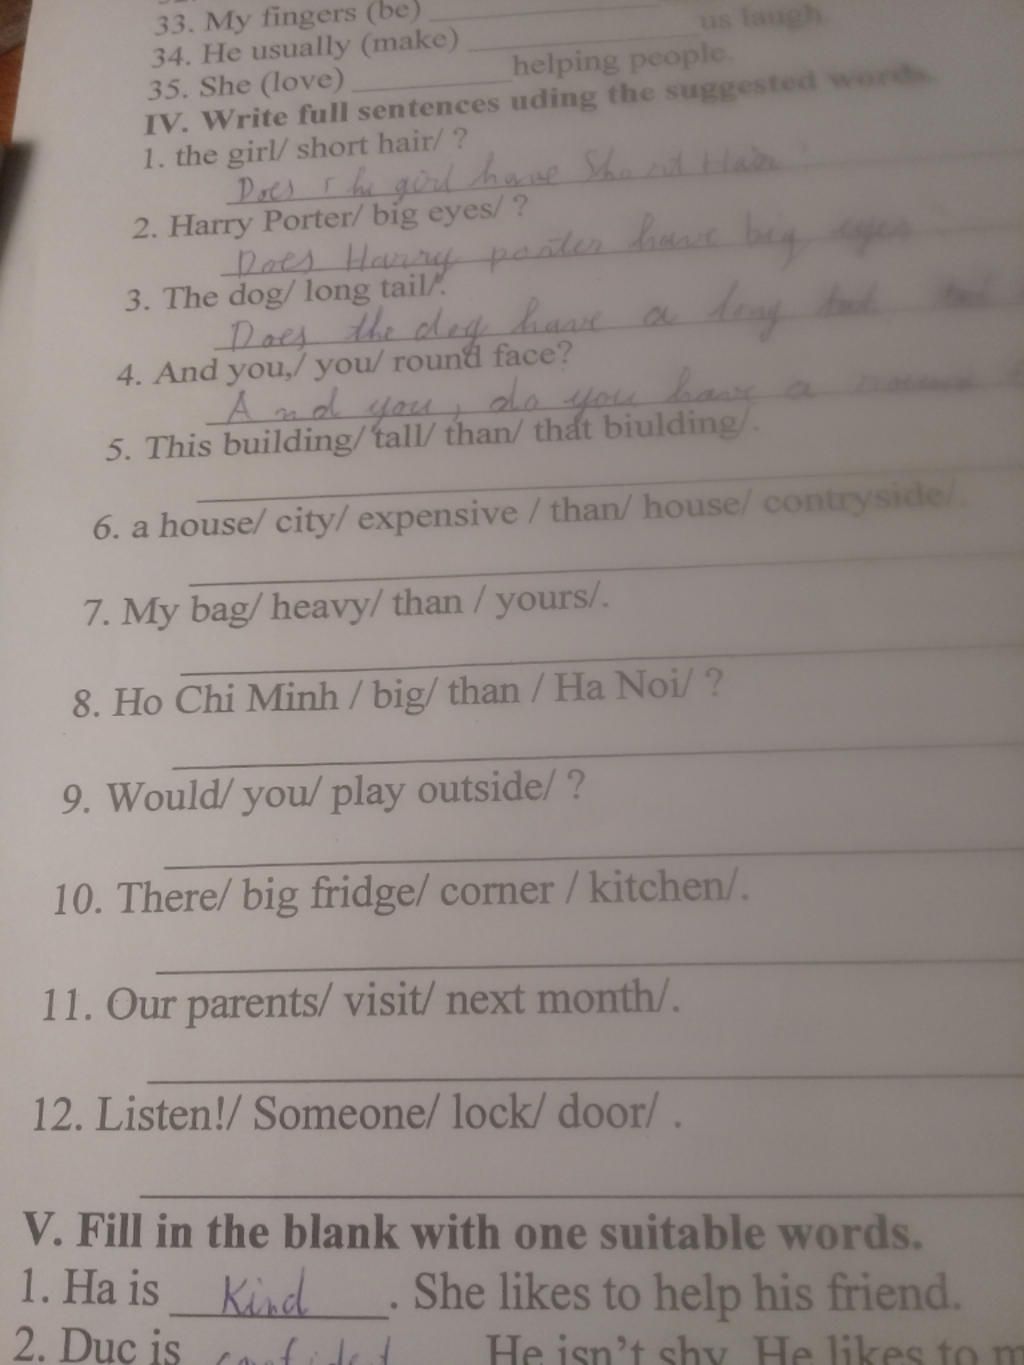 33. My fingers (be) ____________
34. He usually (make) ____________ us laugh.
35. She (love) ____________ helping people.
IV. Write full sentences uding the suggested words.
1. the girl/ short hair/ ?
Does the girl have Short Hair
2. Harry Porter/ big eyes/ ?
Does Harry porter have big eyes
3. The dog/ long tail/.
Does the dog have a long
4. And you,/ you/ round face?
And you, do you have a round
5. This building/ tall/ than/ that biulding/.
6. a house/ city/ expensive / than/ house/ contryside/.
7. My bag/ heavy/ than / yours/.
8. Ho Chi Minh / big/ than / Ha Noi/ ?
9. Would/ you/ play outside/ ?
10. There/ big fridge/ corner / kitchen/.
11. Our parents/ visit/ next month/.
12. Listen!/ Someone/ lock/ door/ .
V. Fill in the blank with one suitable words.
1. Ha is Kind . She likes to help his friend.
2. Duc is He isn't shy. He likes to